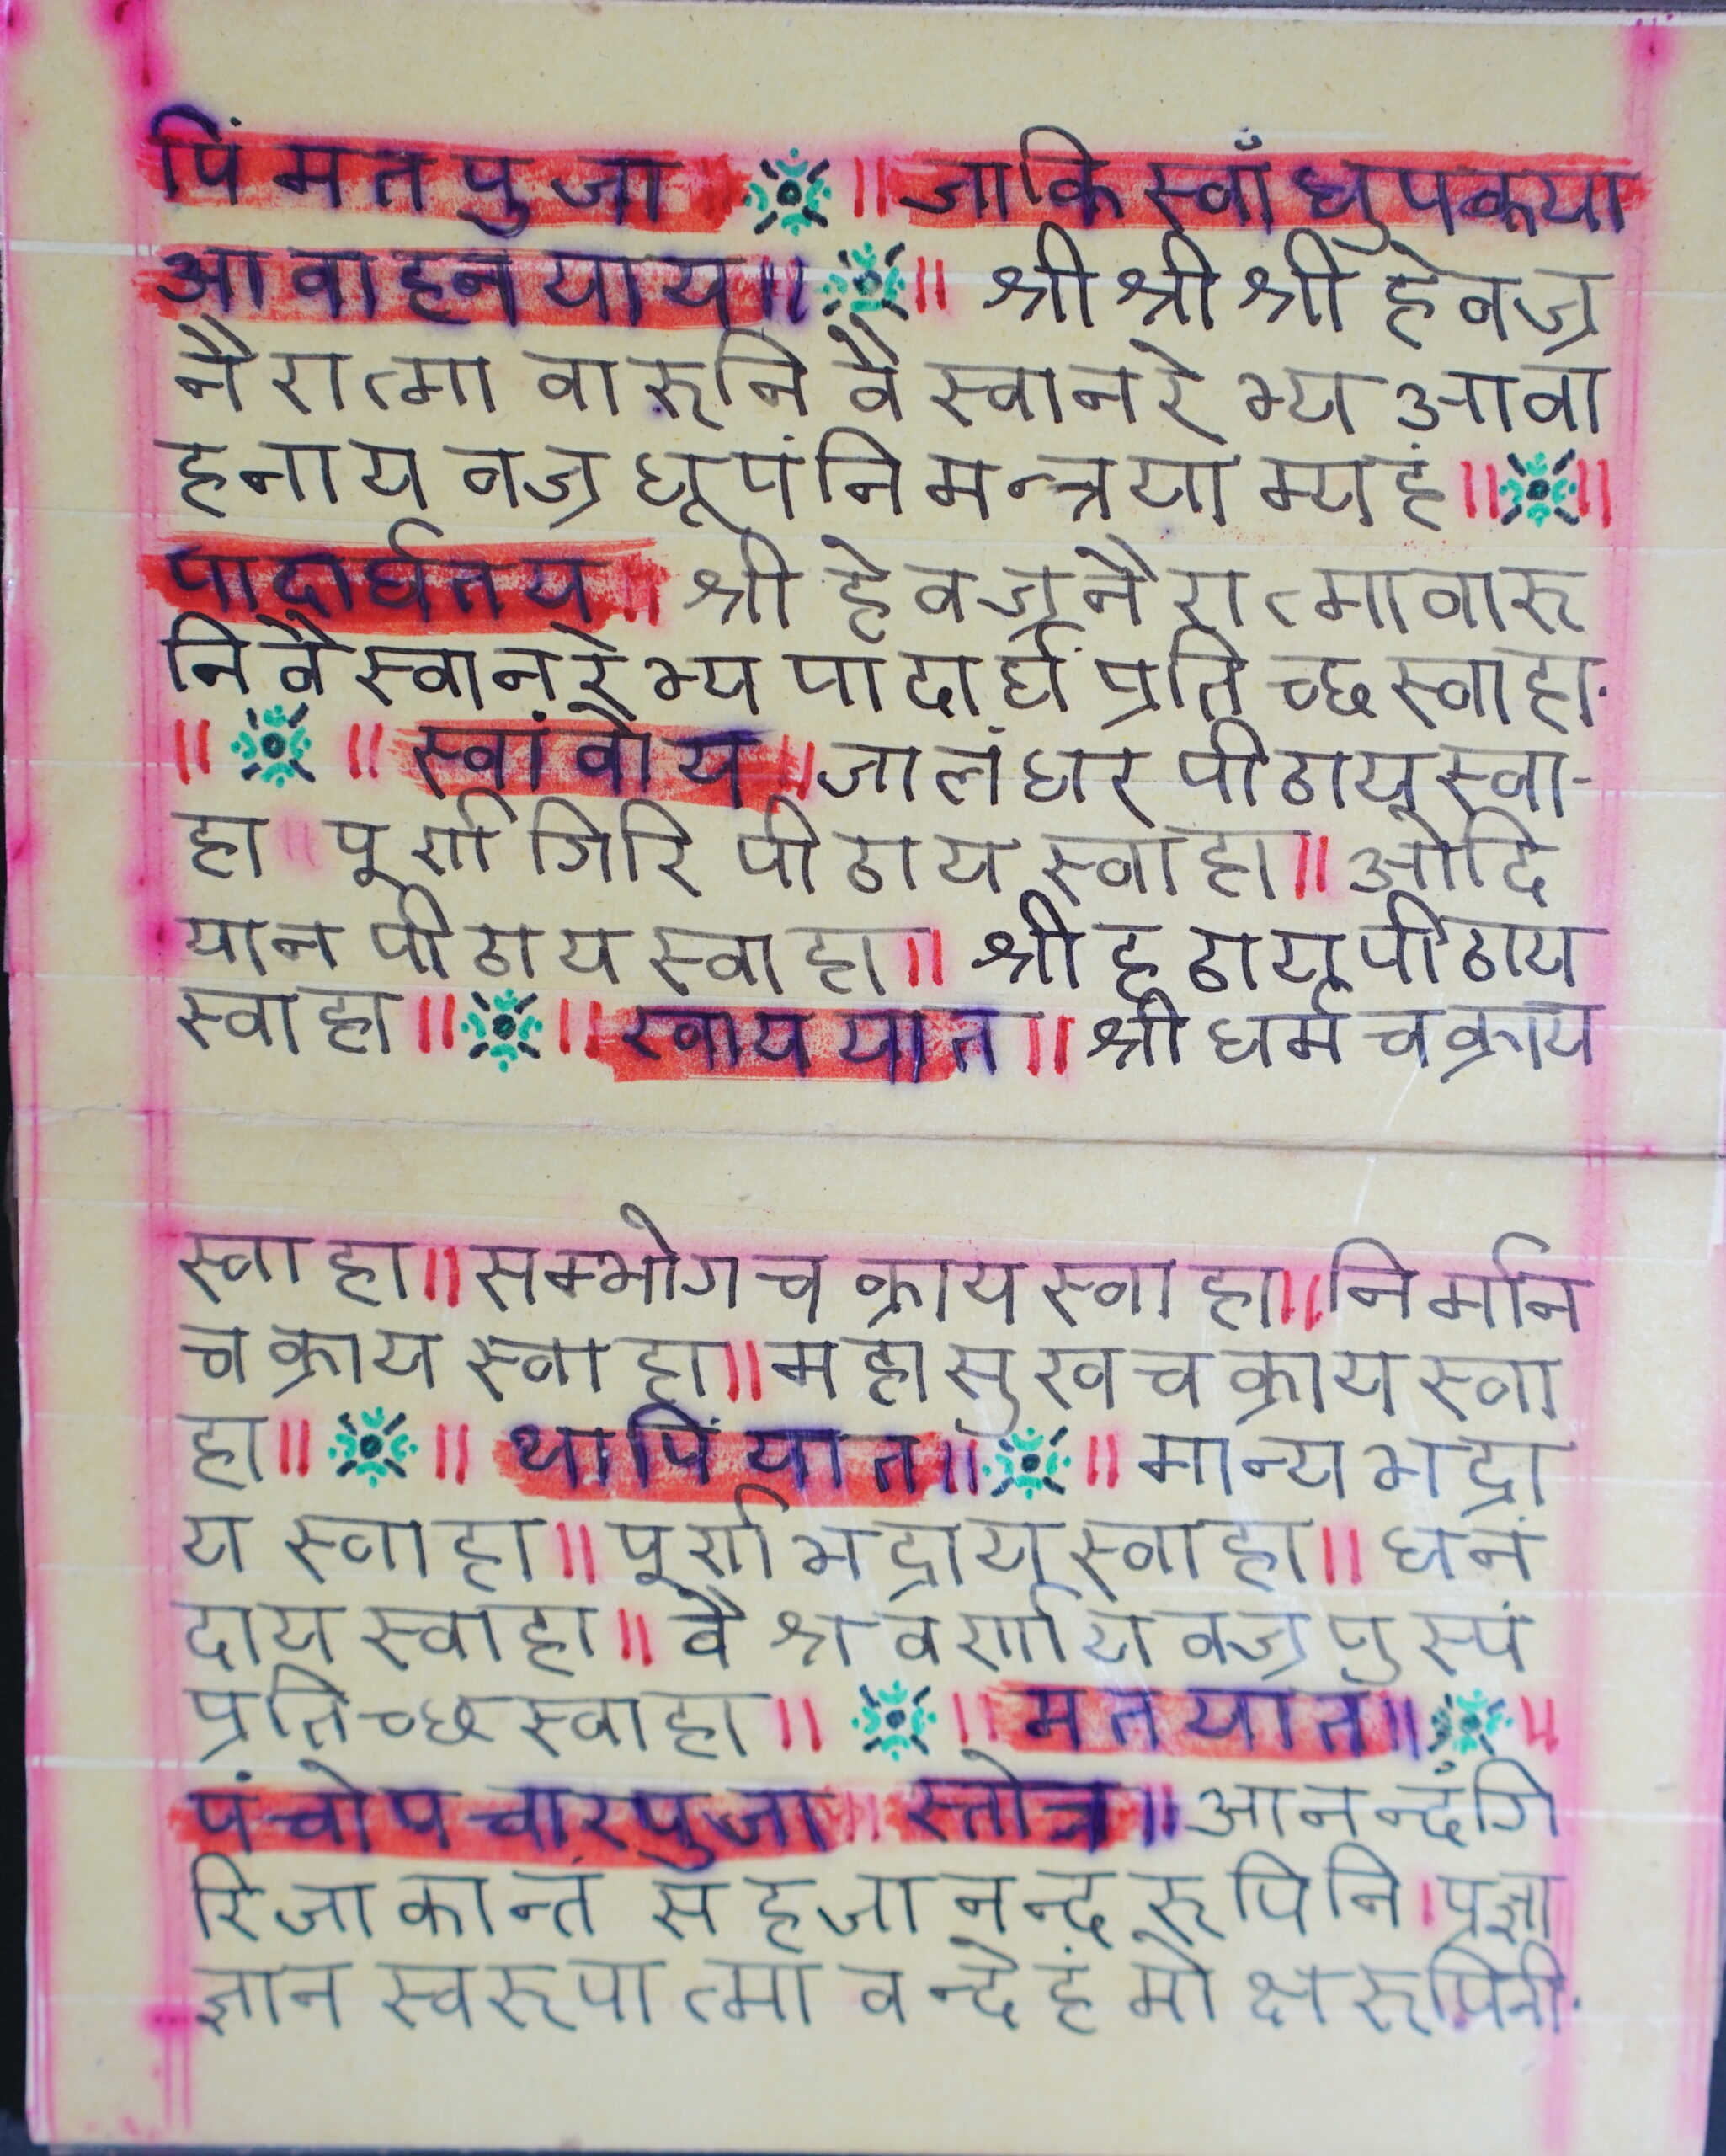 पिंमतपुजा ॥ ॥ जाकिस्वाँधुपकया
आवाहनयाय॥ ॥ श्री श्री श्री हेवज्र
नैरात्मा वारुनि वैस्वानरेभ्य आवा
हनाय वज्र धूपंनिमन्त्रयाम्यहं॥ ॥
पादार्घतय॥ श्री हेवज्रनैरात्मावारु
निवैस्वानरेभ्य पादार्घं प्रतिच्छस्वाहा.
॥ ॥ स्वांवोय॥ जालंधर पीठायस्वा-
हा॥ पूर्णागिरि पीठाय स्वाहा॥ ओदि
यान पीठाय स्वाहा॥ श्री हृठाय पीठाय
स्वाहा॥ ॥ स्वाययात॥ श्री धर्मचक्राय
स्वाहा॥ सम्भोगचक्रायस्वाहा॥ निर्मान
चक्राय स्वाहा॥ महासुखचक्रायस्वा
हा॥ ॥ थापिंयात॥ ॥ मान्यभद्रा
य स्वाहा॥ पूर्णाभद्राय स्वाहा॥ धनं
दाय स्वाहा॥ वैश्रवर्णाय वज्रपुस्पं
प्रतिच्छस्वाहा॥ ॥ मतयात॥ ॥
पंचोपचारपुजा॥ स्तोत्र॥ आनन्दंगि
रिजाकान्तं सहजानन्दरूपिनि। प्रज्ञा
ज्ञान स्वरूपात्मा वन्देहं मोक्षरूपिनी.